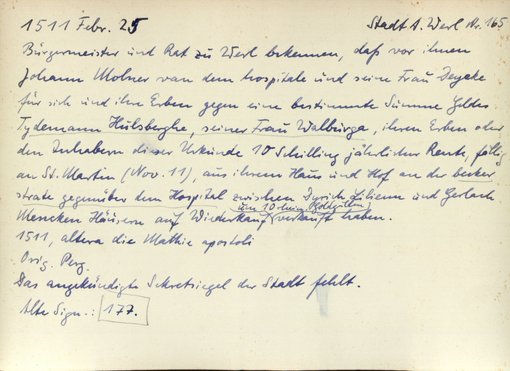 1511 Febr. 25 Stadt A. Werl Nr. 165
Bürgermeister und Rat zu Werl bekennen, daß vor ihnen
Johann Molner van dem hospitale und seine Frau Deyeke
für sich und ihre Erben gegen eine bestimmte Summe Geldes
Tydemann Hülsberghe, seiner Frau Walburga, ihren Erben oder
den Inhabern dieser Urkunde 10 Schilling jährlicher Rente, fällig
an St. Martin (Nov. 11), aus ihrem Haus und Hof an der becker
strate gegenüber dem Hospital zwischen Dyrich und Gerlach
um 10 Goldgulden
Mencken Häusern auf Wiederkauf verkauft haben.
1511, altera die Mathie apostoli
Orig. Perg.
Das angekündigte Sekretsiegel der Stadt fehlt.
Alte Sign.: 177.